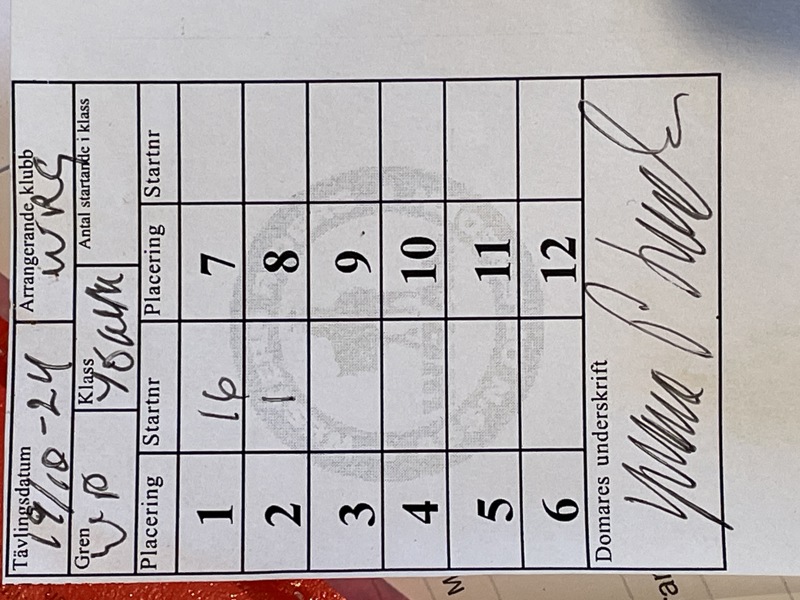 Tävlingsdatum Arrangerande klubb
19/10-24 WRG
Gren Klass Antal startande i klass
WP
Placering Startnr Placering Startnr
1 16 7
2 1 8
3 9
4 10
5 11
6 12
Domares underskrift